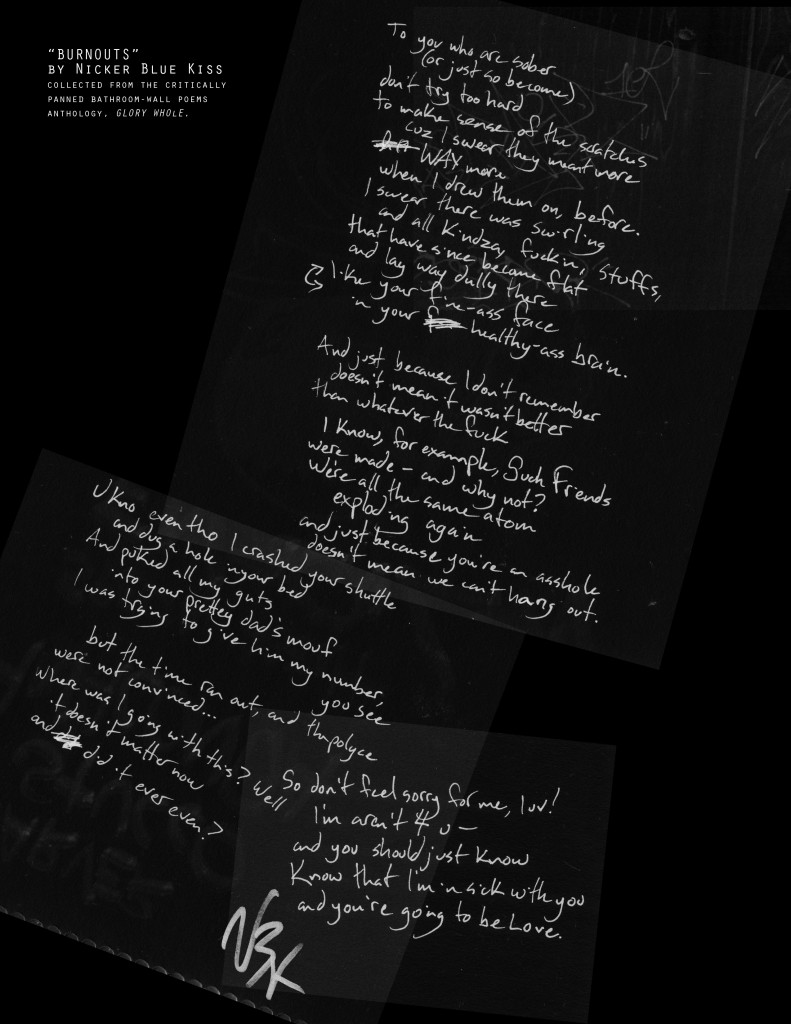 “BURNOUTS”
BY NICKER BLUE KISS
COLLECTED FROM THE CRITICALLY
PANNED BATHROOM-WALL POEMS
ANTHOLOGY, GLORY WHOLE.
To you who are sober
(or just so become)
don't try too hard
to make sense of the scratches
cuz I swear they meant more
WAY more
when I drew them on, before.
I swear there was swirling
and all Kindza, fuckin', stuffs,
that have since become flat
and lay way dully there
like your fine-ass face
in your healthy-ass brain.
And just because I don't remember
doesn't mean it wasn't better
than whatever the fuck
I Know, for example, Such Friends
were made – and why not?
We're all the same atom
exploding again
and just because you're an asshole
doesn't mean we can't hang out.
U Kno even tho I crashed your shuttle
and dug a hole in your bed
And puked all my guts
into your pretty dad's mouf
I was trying to give him my number,
you see
but the time ran out, and thpolyce
were not convinced...
Where was I going with this? Well
it doesn't matter now
and did it ever even?
So don't feel sorry for me, luv!
I'm aren't 4 u –
and you should just know
Know that I'm in sick with you
and you're going to be Love.
NBK